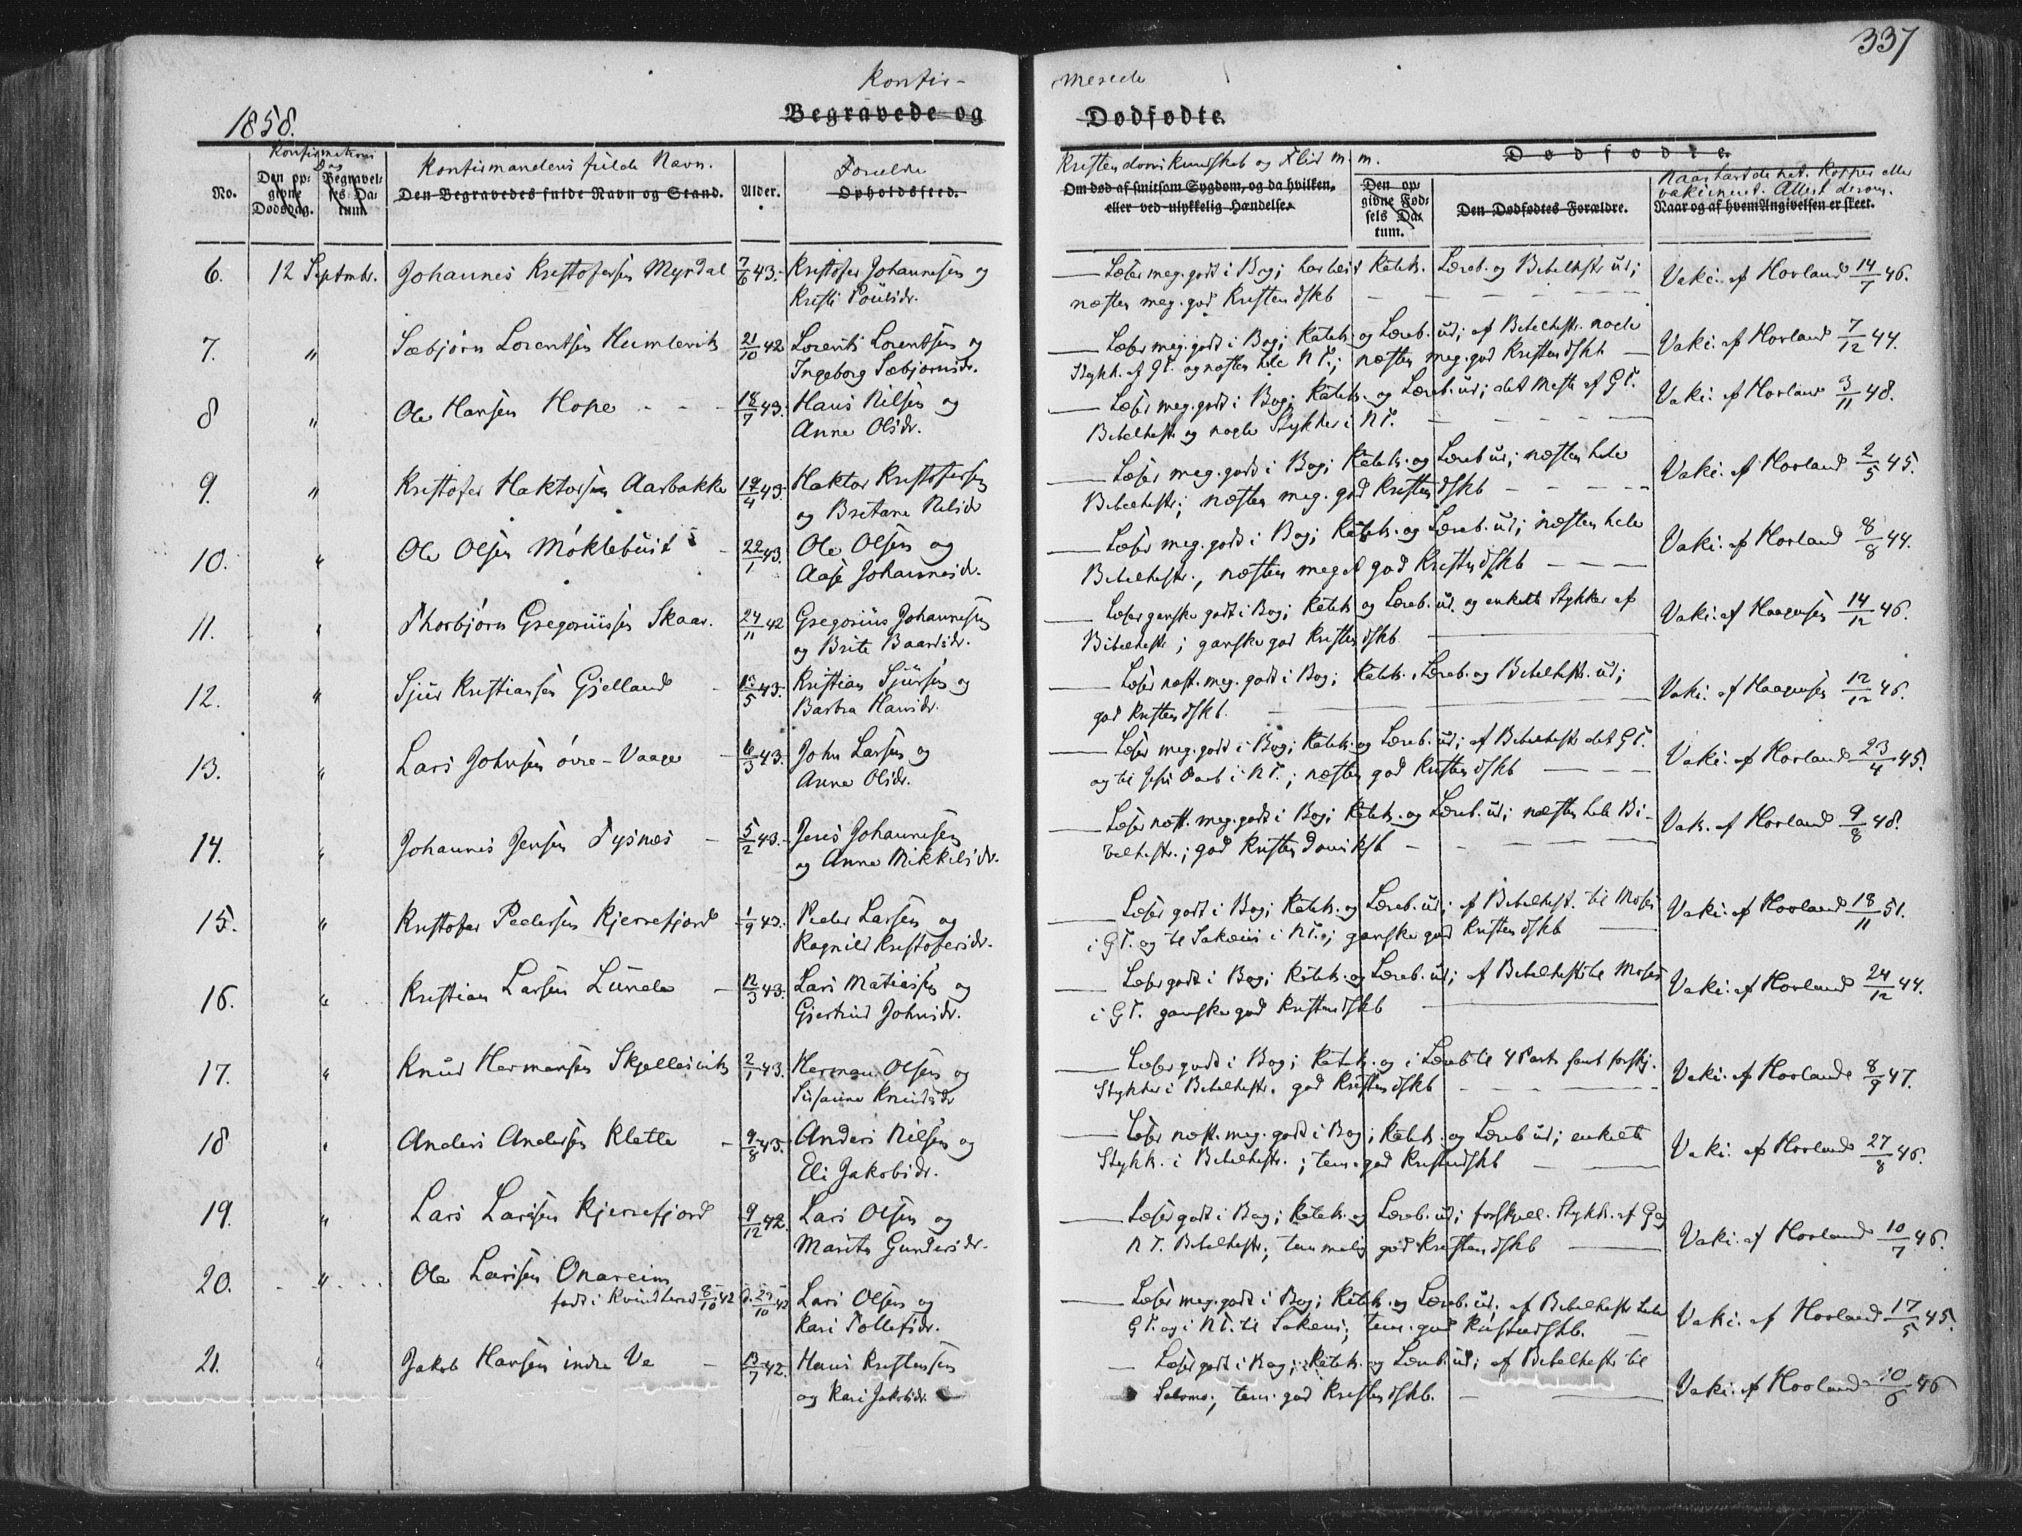 337
Konfir-
merede
1858.
Begravede og
Dødfødte.
Konfirmations
Dag
Konfirmandens fulde Navn.
Forældre
Kristendomskundskab og Flid m. m.
Dødfødte.
Naar havt de nat. Kopper eller
vakcineret. Attest derom.
No.
Den op-
givne
Dødsdag.
Begravel-
ses-Da-
tum.
Den Begravedes fulde Navn og Stand.
Alder.
Opholdssted.
Om død af smitsom Sygdom, og da hvilken,
eller ved ulykkelig Hændelse.
Den op-
givne Fød-
sels Da-
tum.
Den Dødfødtes Forældre.
Naar og af hvem Angivelsen er skeet.
6. 12 Septmbr. Johannes Kristofersen Myrdal 7/6 43. Kristofer Johannesen og
Kristi Poulsdr.
Læser meg. godt i Bog; har lært Katek. Læreb. og Bibelhistr. ud;
næsten meg. god Kristendskb
Vaki. af Hovland 14/7 46.
7. " Sæbjørn Lorentsen Humlevik 21/10 42 Lorents Lorentsen og
Ingeborg Sæbjørnsdr.
Læser meg. godt i Bog; Katek. og Læreb. ud; af Bibelhistr. nogle
Stykk. af GT. og næsten hele NT.; næsten meg. god Kristendskb
Vaki. af Hovland 7/12 44.
8 " Ole Hansen Hope 18/7 43. Hans Nilsen og
Anne Olsdr.
Læser meg. godt i Bog; Katek. og Læreb. ud; det meste af GT.
Bibelhistr. og nogle Stykker i NT.
Vaki. af Hovland 3/11 48.
9. " Kristofer Haktorsen Aarbakke 19/4 43. Haktor Kristofersen
og Britane Nilsdr
Læser meg. godt i Bog; Katek. og Læreb ud; næsten hele
Bibelhistr.; næsten meg. god Kristendskb
Vaki. af Hovland 2/5 45.
10. " Ole Olsen Møklebust 22/1 43. Ole Olsen og
Aase Johannesdr.
Læser meg. godt i Bog; Katek. og Læreb. ud; næsten hele
Bibelhistr., næsten meget god Kristendskb
Vaki. af Hovland 8/8 44.
11. " Thorbjørn Gregoriussen Skaar. 24/11 42 Gregorius Johannesen
og Brite Baardsdr.
Læser ganske godt i Bog; Katek. og Læreb. ud. og enkelte Stykker af
Bibelhistr; ganske god Kristendskb.
Vaki. af Haagensen 14/12 46.
12. " Sjur Kristiansen Gjelland 13/5 43. Kristian Sjursen og
Barbra Hansdr.
Læser næst. meg. godt i Bog; Katek., Læreb. og Bibelhistr. ud;
god Kristendskb.
Vaki. af Haagensen 12/12 46.
13. " Lars Johnsen øvre-Vaage 6/3 43. John Larsen og
Anne Olsdr.
Læser meg. godt i Bog; Katek. og Læreb. ud; af Bibelhistr det GT.
og til Jesu Daab i NT.; næsten god Kristendskb
Vaki. af Hovland 23/4 45.
14. " Johannes Jensen Tysnes 5/2 43. Jens Johannesen
og Anne Mikkelsdr.
Læser næst. meg. godt i Bog; Katek. og Læreb. ud; næsten hele Bi-
belhistr.; god Kristendomskb
Vak. af Hovland 9/8 48.
15. " Kristofer Pedersen Kjerrefjord 1/9 43. Peder Larsen og
Ragnild Kristofersdr.
Læser godt i Bog; Katek. og Læreb. ud; af Bibelhist. til Moses
i GT. og til Sakæus i NT.; ganske god Kristendskb
Vaki. af Hovland 18/11 51.
16. " Kristian Larsen Lunde 12/3 43. Lars Matiassen og
Gjertrud Johnsdr.
Læser godt i Bog; Katek. og Læreb. ud; af Bibelhistr til Moses
i GT. ganske god Kristendskb
Vaki. af Hovland 24/12 44.
17. " Knud Hermansen Skjellesvik 2/1 43. Herman Olsen og
Susanne Knudsdr
Læser godt i Bog; Katek. og i Læreb til 4 Part samt forskj.
Stykker i Bibelhistr. god Kristendskb
Vaki. af Hovland 8/9 47.
18 " Anders Andersen Klette 9/8 43. Anders Nilsen og
Eli Jakobsdr.
Læser næst. meg. godt i Bog; Katek. og Læreb ud; enkelte
Stykk. i Bibelhistr.; tem. god Kristendskb
Vaki. af Hovland 27/8 46.
19. " Lars Larsen Kjerrefjord 9/12 42. Lars Olsen og
Marite Gundersdr.
Læser godt i Bog; Katek. og Læreb. ud; forskjell. Stykk. af G og
NT. Bibelhistr; temmelig god Kristendskb
Vaki. af Hovland 10/7 46.
20. " Ole Larsen Onareim
født i Kvindherred 8/10 42 Lars Olsen og
Kari Tollefsdr.
Læser meg. godt i Bog; Katek. og Læreb. ud. af Bibelhistr hele
GT. og i NT. til Sakeus; tem. god Kristendskb.
Vaki. af Hovland 17/5 45.
21. " Jakob Hansen indre Ve 13/7 42. Hans Kristensen
og Kari Jakobsdr.
Læser godt i Bog; Katek. og Læreb. ud; af Bibelhistr til
Salomo; tem. god Kristendskb.
Vaki. af Hovland 10/6 46